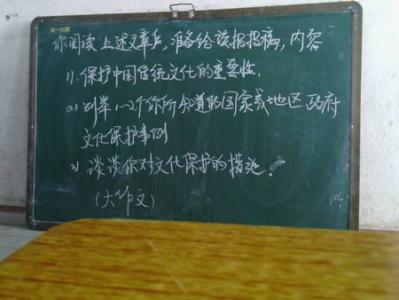 你阅读上述文章后,准备给该报投稿,内容
1). 保护中国传统文化的重要性.
2) 列举1~2个你所知道的国家或地区政府
文化保护事例
3) 谈谈你对文化保护的措施.
(大作文)